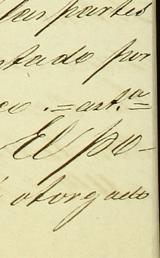 las partes
tado por
co. = art.n
El po-
otorgado